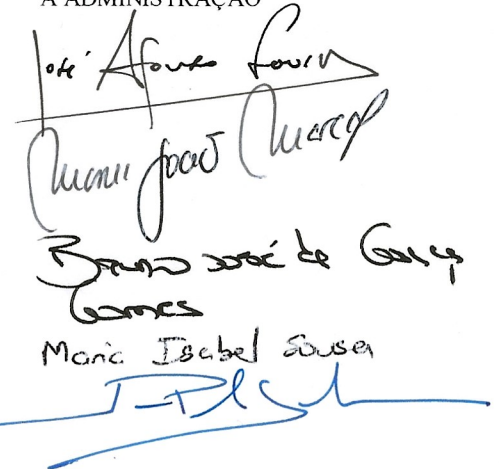 A ADMINISTRAÇÃO
José Afonso
Maria João Marçal
Bruno José de
Gomes
Maria Isabel Sousa